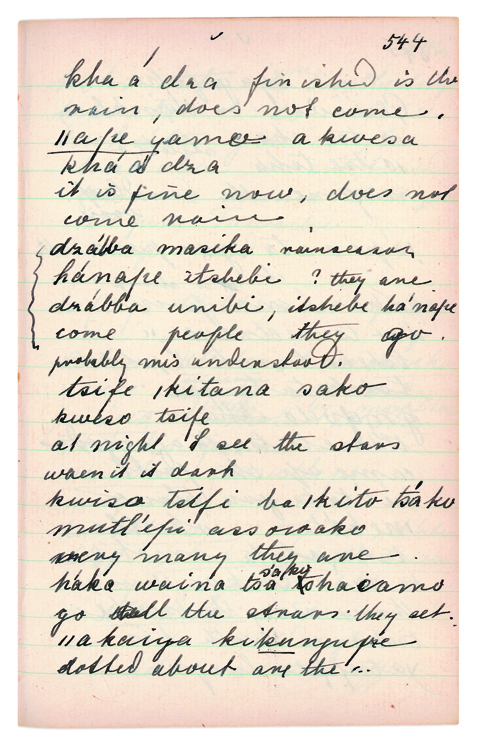 544
kha á dza finished is the
rain, does not come.
"ape yamo akwesa
kháá dza
it is fine now, does not
come rain
dzábba masika rainseason
hánape itshebe ? they are
dzábba unibi, itshebe hánape
come people they go.
probably misunderstood.
tsife ikitana sako
kwiso tsife
at night I see the stars
when it is dark
kwisa tsifi ba ikito tsáko
mutl'épi assowako
many they are.
háka waina tsá sako tshacamo
go all the stars. they set.
"akaiya kikungupe
dotted about are the ..